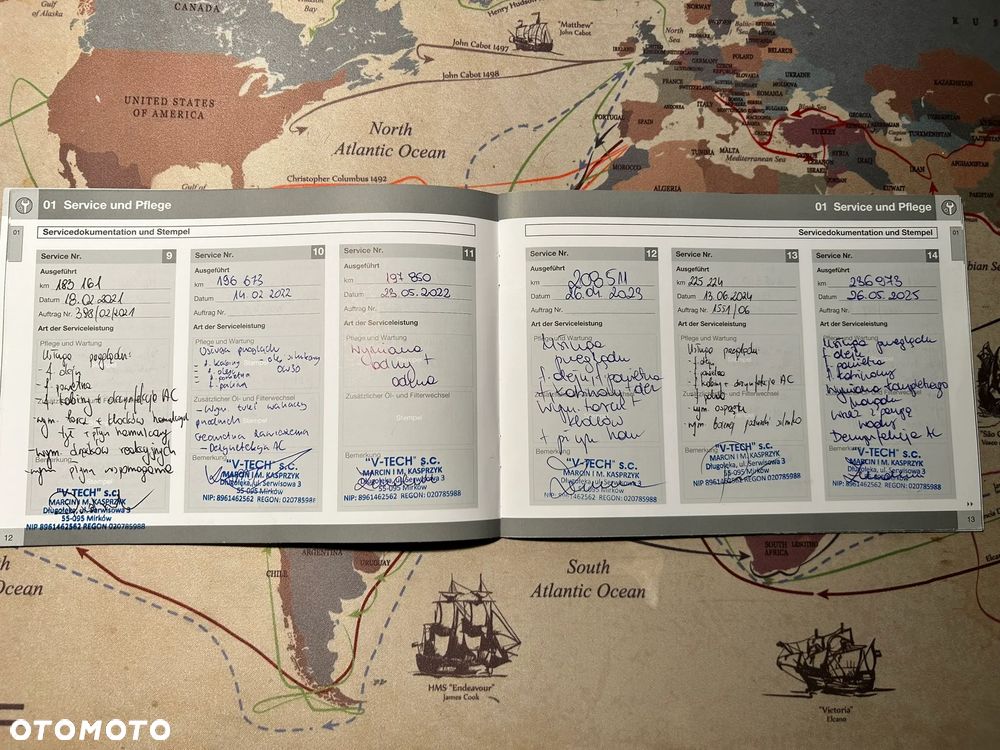 CANADA
Hudson
Bay
Henry Hudson
"Matthew"
John Cabot
John Cabot 1497
John Cabot 1498
UNITED STATES
OF AMERICA
North
Atlantic Ocean
Christopher Columbus 1492
Gulf of
NORWAY
North
Sea
IRELAND
DENMARK
BELARUS
POLAND
GERMANY
UKRAINE
FRANCE
ROMANIA
ITALY
PORTUGAL
SPAIN
ANDORRA
Black Sea
GEORGIA
TURKEY
KAZAKHSTAN
TURKMENISTAN
AFGHANISTAN
MALTA
TUNISIA
Mediterranean Sea
LEBANON
ISRAEL
SYRIA
IRAQ
IRAN
MOROCCO
ALGERIA
KUWAIT
01 Service und Pflege
01 Service und Pflege
Servicedokumentation und Stempel
Servicedokumentation und Stempel
01
01
Service Nr. 9
Ausgeführt
km 183 161
Datum 18.02.2021
Auftrag Nr. 398/02/2021
Art der Serviceleistung
Pflege und Wartung
Usługa przeglądu:
- f. oleju
- f. powietrza
- f. kabiny + dezynfekcja AC
- wym. tarcz + klocków hamulcowych
tył + płyn hamulcowy
- wym. drążków reakcyjnych
Bemerkung
- wym. płynu wspomagania
"V-TECH" s.c.
MARCIN I M. KASPRZYK
Długołęka, ul. Serwisowa 3
55-095 Mirków
NIP 8961462562 REGON: 020785988
Service Nr. 10
Ausgeführt
km 196 673
Datum 14.02 2022
Auftrag Nr.
Art der Serviceleistung
Pflege und Wartung
Usługa przeglądu
- f. kabiny - olej silnikowy
- f. oleju 0W30
- f. powietrza
- f. paliwa
Zusätzlicher Öl- und Filterwechsel
- Wym. tulei wahaczy
przednich
Geometria zawieszenia
Bemerkung
- Dezynfekcja AC
"V-TECH" s.c.
MARCIN I M. KASPRZYK
Długołęka, ul. Serwisowa 3
55-095 Mirków
NIP: 8961462562 REGON: 020785988
Service Nr. 11
Ausgeführt
km 197 850
Datum 23.05.2022
Auftrag Nr.
Art der Serviceleistung
Pflege und Wartung
Wymiana
odmy +
Zusätzlicher Öl- und Filterwechsel
Stempel
Bemerkung
"V-TECH" s.c.
MARCIN I M. KASPRZYK
Długołęka, ul. Serwisowa 3
55-095 Mirków
NIP: 8961462562 REGON: 020785988
Service Nr. 12
Ausgeführt
km 208 511
Datum 26.04.2023
Auftrag Nr.
Art der Serviceleistung
Pflege und Wartung
Usługa
przeglądu
f. oleju, powietrza
kabinowy + olej
wym. tarcz +
klocków
+ płyn ham
Bemerkung
"V-TECH" s.c.
MARCIN I M. KASPRZYK
Długołęka, ul. Serwisowa 3
55-095 Mirków
NIP: 8961462562 REGON: 020785988
Service Nr. 13
Ausgeführt
km 225 224
Datum 13.06.2024
Auftrag Nr. 1551/06
Art der Serviceleistung
Pflege und Wartung
Usługa przeglądu:
- f. oleju
- f. powietrza
- f. kabiny + dezynfekcja AC
Bemerkung
"V-TECH" s.c.
MARCIN I M. KASPRZYK
Długołęka, ul. Serwisowa 3
55-095 Mirków
NIP: 8961462562 REGON: 020785988
Service Nr. 14
Ausgeführt
km 236 973
Datum 26.05.2025
Auftrag Nr.
Art der Serviceleistung
Pflege und Wartung
Usługa przeglądu
f. oleju
f. powietrza
f. kabinowy
Wymiana kompletnego
rozrządu
wraz z pompą
wody
Dezynfekcja AC
Bemerkung
"V-TECH" s.c.
MARCIN I M. KASPRZYK
Długołęka, ul. Serwisowa 3
55-095 Mirków
NIP: 8961462562 REGON: 020785988
12
13
CHILE
ARGENTINA
URUGUAY
South
Atlantic Ocean
SOUTH AFRICA
LESOTHO
HMS "Endeavour"
James Cook
"Victoria"
Elcano
OTOMOTO